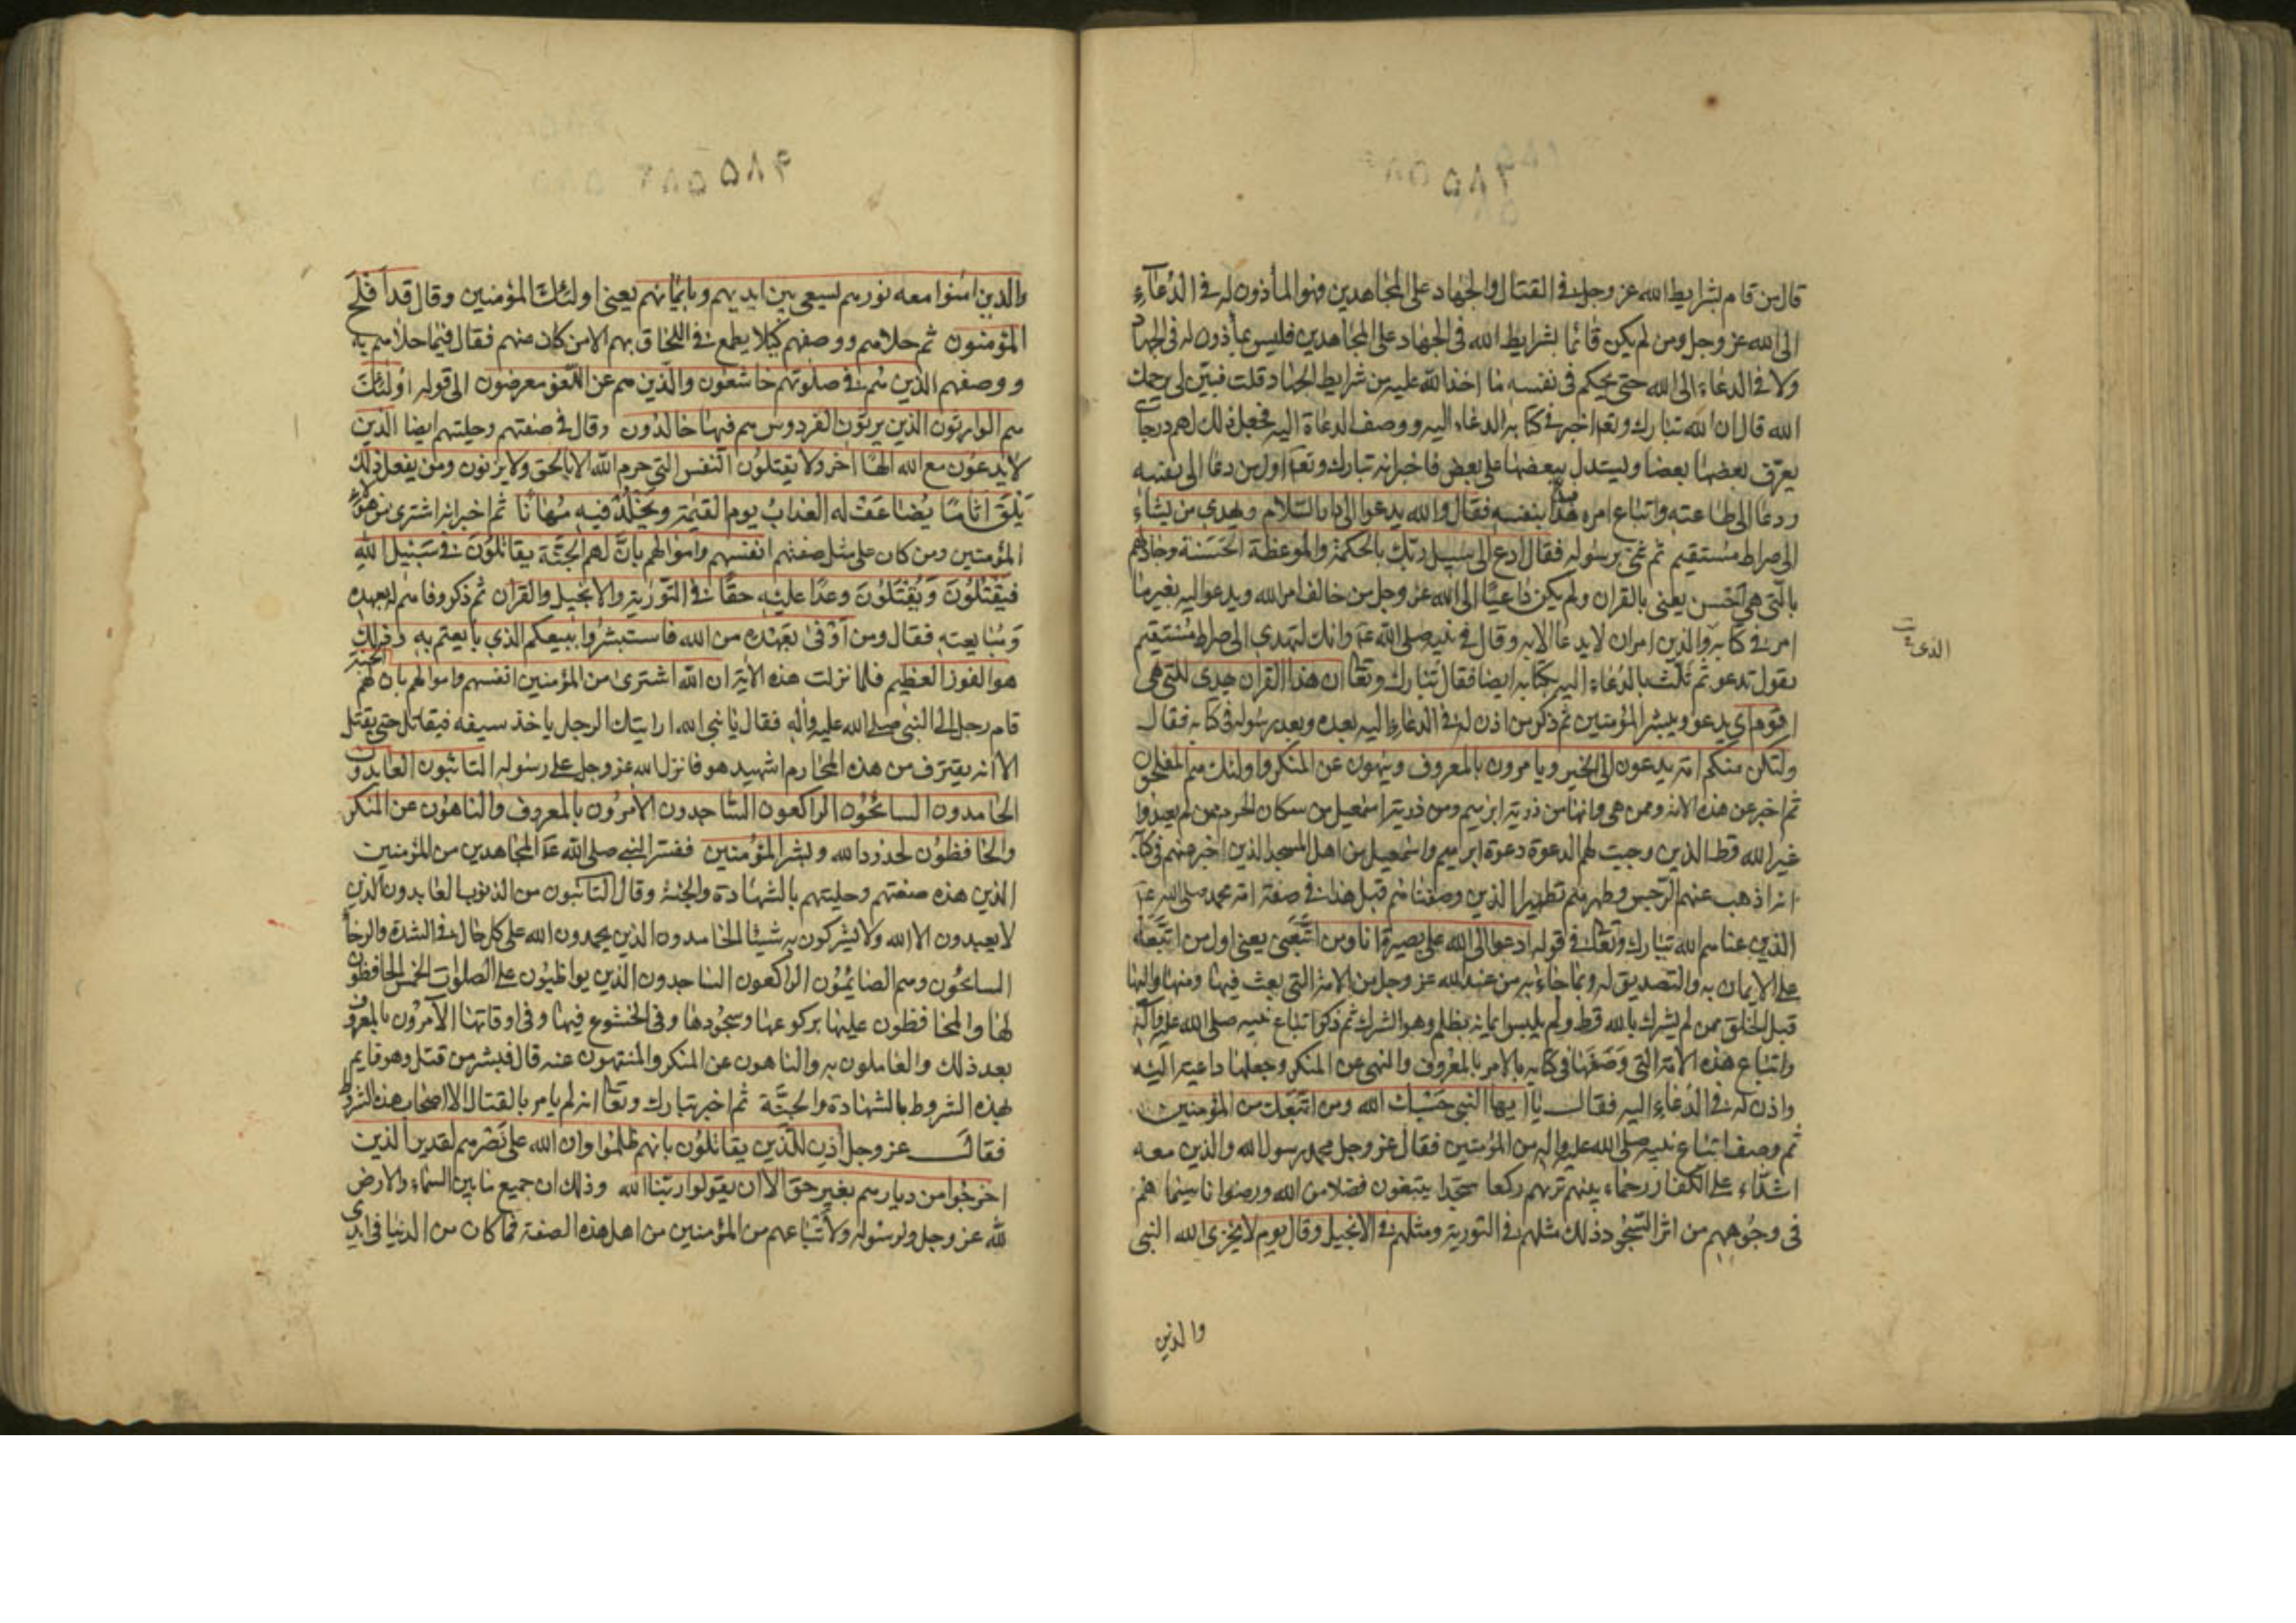 ٥٨٣
قال من قام بشرايط الله عز وجل في القتال والجهاد على المجاهدين فهو المأذون له في الدعاء
الى الله عز وجل ومن لم يكن قائما بشرايط الله في الجهاد على المجاهدين فليس بمأذون له في الجهاد
ولا في الدعاء الى الله حتى يحكم في نفسه ما اخذ الله عليه من شرايط الجهاد قلت فبين لي يرحمك
الله قال ان الله تبارك وتعا اخبر في كتابه الدعاء اليه ووصف الدعاة اليه فجعل ذلك لهم درجات
يعرف بعضها بعضا ويستدل ببعضها على بعض فاخبر انه تبارك وتعا اول من دعا الى نفسه
ودعا الى طاعته واتباع امره فبدا بنفسه فقال والله يدعوا الى دار السلام ويهدي من يشاء
الى صراط مستقيم ثم ثنى برسوله فقال ادع الى سبيل ربك بالحكمة والموعظة الحسنة وجادلهم
بالتي هي احسن يعنى بالقران ولم يكن داعيا الى الله عز وجل من خالف امر الله ويدعو اليه بغير ما
امر في كتابه والدين امر ان لا يدعا الا به وقال في نبيه صلى الله عليه وانك لتهدي الى صراط مستقيم
الذي
يقول تدعو ثم ثلث بالدعاء اليه بكتابه ايضا فقال تبارك وتعا ان هذا القران يهدى للتي هي
اقوم اي يدعو ويبشر المؤمنين ثم ذكر من اذن له في الدعاء اليه بعده وبعد رسوله في كتابه فقال
ولتكن منكم امة يدعون الى الخير ويامرون بالمعروف وينهون عن المنكر واولئك هم المفلحون
ثم اخبر عن هذه الامة وممن هي وانها من ذرية ابرهيم ومن ذرية اسمعيل من سكان الحرم ممن لم يعبدوا
غير الله قط الذين وجبت لهم الدعوة دعوة ابراهيم واسمعيل من اهل المسجد الذين اخبر عنهم في كتابه
انه اذهب عنهم الرجس وطهرهم تطهيرا الذين وصفناهم قبل هذا في صفة امة محمد صلى الله عليه
الذين عناهم الله تبارك وتعالى في قوله ادعوا الى الله على بصيرة انا ومن اتبعني يعنى اول من اتبعه
على الايمان به والتصديق له وبما جاء به من عند الله عز وجل من الامة التي بعث فيها ومنها واليها
قبل الخلق ممن لم يشرك بالله قط ولم يلبس ايمانه بظلم وهو الشرك ثم ذكر اتباع نبيه صلى الله عليه وآله
واتباع هذه الامة التي وصفها في كتابه بالامر بالمعروف والنهى عن المنكر وجعلها داعية اليه
واذن له في الدعاء اليه فقال يا ايها النبي حسبك الله ومن اتبعك من المؤمنين
ثم وصف اتباع نبيه صلى الله عليه واله من المؤمنين فقال عز وجل محمد رسول الله والذين معه
اشداء على الكفار رحماء بينهم تريهم ركعا سجدا يبتغون فضلا من الله ورضوانا سيماهم
في وجوههم من اثر السجود ذلك مثلهم في التورية ومثلهم في الانجيل وقال يوم لا يخزى الله النبى
والذين
٥٨٤
والذين امنوا معه نورهم يسعى بين ايديهم وبايمانهم يعنى اولئك المؤمنين وقال قد افلح
المؤمنون ثم حلاهم ووصفهم كيلا يطمع في اللحاق بهم الا من كان منهم فقال فيما حلاهم به
ووصفهم الذين هم في صلوتهم خاشعون والذين هم عن اللغو معرضون الى قوله اولئك
هم الوارثون الذين يرثون الفردوس هم فيها خالدون وقال في صفتهم وحليتهم ايضا الذين
لا يدعون مع الله الها اخر ولا يقتلون النفس التي حرم الله الا بالحق ولا يزنون ومن يفعل ذلك
يلق اثاما يضاعف له العذاب يوم القيمة ويخلد فيه مهانا ثم اخبر انه اشترى من هؤلاء
المؤمنين ومن كان على مثل صفتهم انفسهم واموالهم بان لهم الجنة يقاتلون في سبيل الله
فيقتلون ويقتلون وعدا عليه حقا في التورية والانجيل والقران ثم ذكر وفاهم له بعهده
ومبايعته فقال ومن اوفى بعهده من الله فاستبشروا ببيعكم الذي بايعتم به وذلك
هو الفوز العظيم فلما نزلت هذه الاية ان الله اشترى من المؤمنين انفسهم واموالهم بان لهم الجنة
قام رجل الى النبي صلى الله عليه واله فقال يا نبي الله ارايتك الرجل ياخذ سيفه فيقاتل حتى يقتل
الا انه يقترف من هذه المحارم اشهيد هو فانزل الله عز وجل على رسوله التائبون العابدون
الحامدون السائحون الراكعون الساجدون الآمرون بالمعروف والناهون عن المنكر
والحافظون لحدود الله وبشر المؤمنين ففسر النبي صلى الله عليه المجاهدين من المؤمنين
الذين هذه صفتهم وحليتهم بالشهادة والجنة وقال التائبون من الذنوب العابدون الذين
لا يعبدون الا الله ولا يشركون به شيئا الحامدون الذين يحمدون الله على كل حال في الشدة والرخا
السائحون وهم الصائمون الراكعون الساجدون الذين يواظبون على الصلوات الخمس الحافظون
لها والمحافظون عليها بركوعها وسجودها وفى الخشوع فيها وفى اوقاتها الآمرون بالمعروف
بعد ذلك والعاملون به والناهون عن المنكر والمنتهون عنه قال فبشر من قتل وهو قايم
بهذه الشروط بالشهادة والجنة ثم اخبر تبارك وتعا انه لم يامر بالقتال الا اصحاب هذه الشروط
فقال عز وجل اذن للذين يقاتلون بانهم ظلموا وان الله على نصرهم لقدير الذين
اخرجوا من ديارهم بغير حق الا ان يقولوا ربنا الله وذلك ان جميع ما بين السماء والارض
لله عز وجل ولرسوله ولاتباعهم من المؤمنين من اهل هذه الصفة فما كان من الدنيا في ايدى